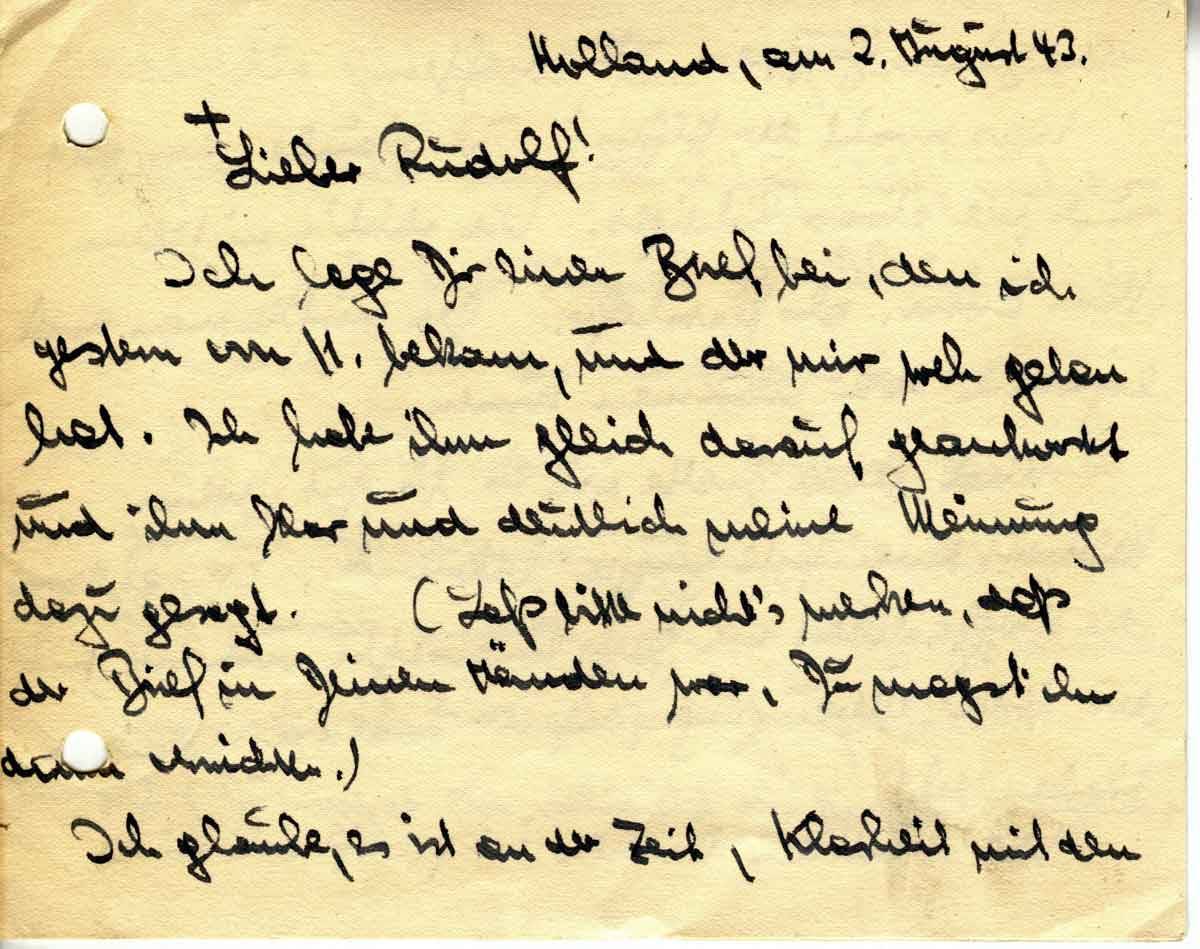 Holland, am 2. August 43.
+
Lieber Rudolf!
Ich lege Dir einen Brief bei, den ich
gestern von H. bekam, und der mir weh getan
hat. Ich habe ihm gleich darauf geantwortet
und ihm klar und deutlich meine Meinung
dazu gesagt. (Laß bitte nicht's merken, daß
der Brief in Deinen Händen war, Du magst ihn
dann vernichten.)
Ich glaube, es ist an der Zeit, Klarheit mit den